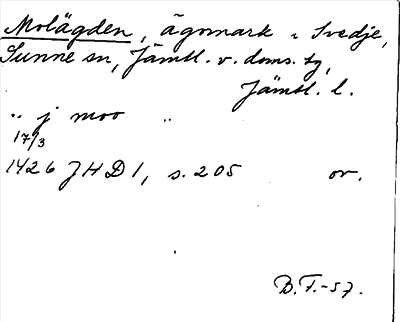 Molägden, ägomark i Svedje,
Sunne sn, Jämtl. v. doms. tg,
Jämtl. l.
" j moo "
17/3
1426 JHD 1, s. 205 or.
B.F.-57.